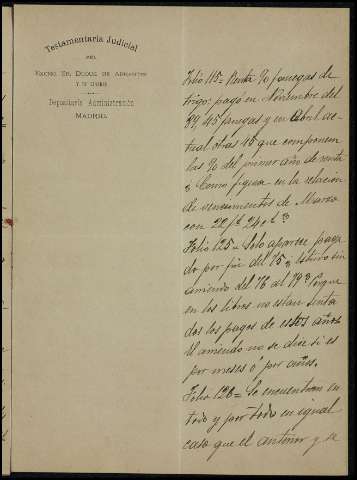 Testamentaria Judicial
DEL
EXCMO. SR. DUQUE DE ABRANTES
Y
Depositaría Administración
MADRID
Folio 115 = Renta 90 fanegas de
trigo: pagó en Noviembre del
89, 45 fanegas y en Abril ac-
tual otras 45 que componen
las 90 del primer año de renta
¿Como figura en la relación
de vencimientos de Marzo
con 22 fs 24 cs?
Folio 125 = Solo aparece paga-
do por fin del 75 ¿estuvo sin
arriendo del 76 al 79? Porque
en los libros no estan senta-
dos los pagos de estos años
El arriendo no se dice si es
por meses ó por años.
Folio 126 = Se encuentra en
todo y por todo en igual
caso que el anterior y se